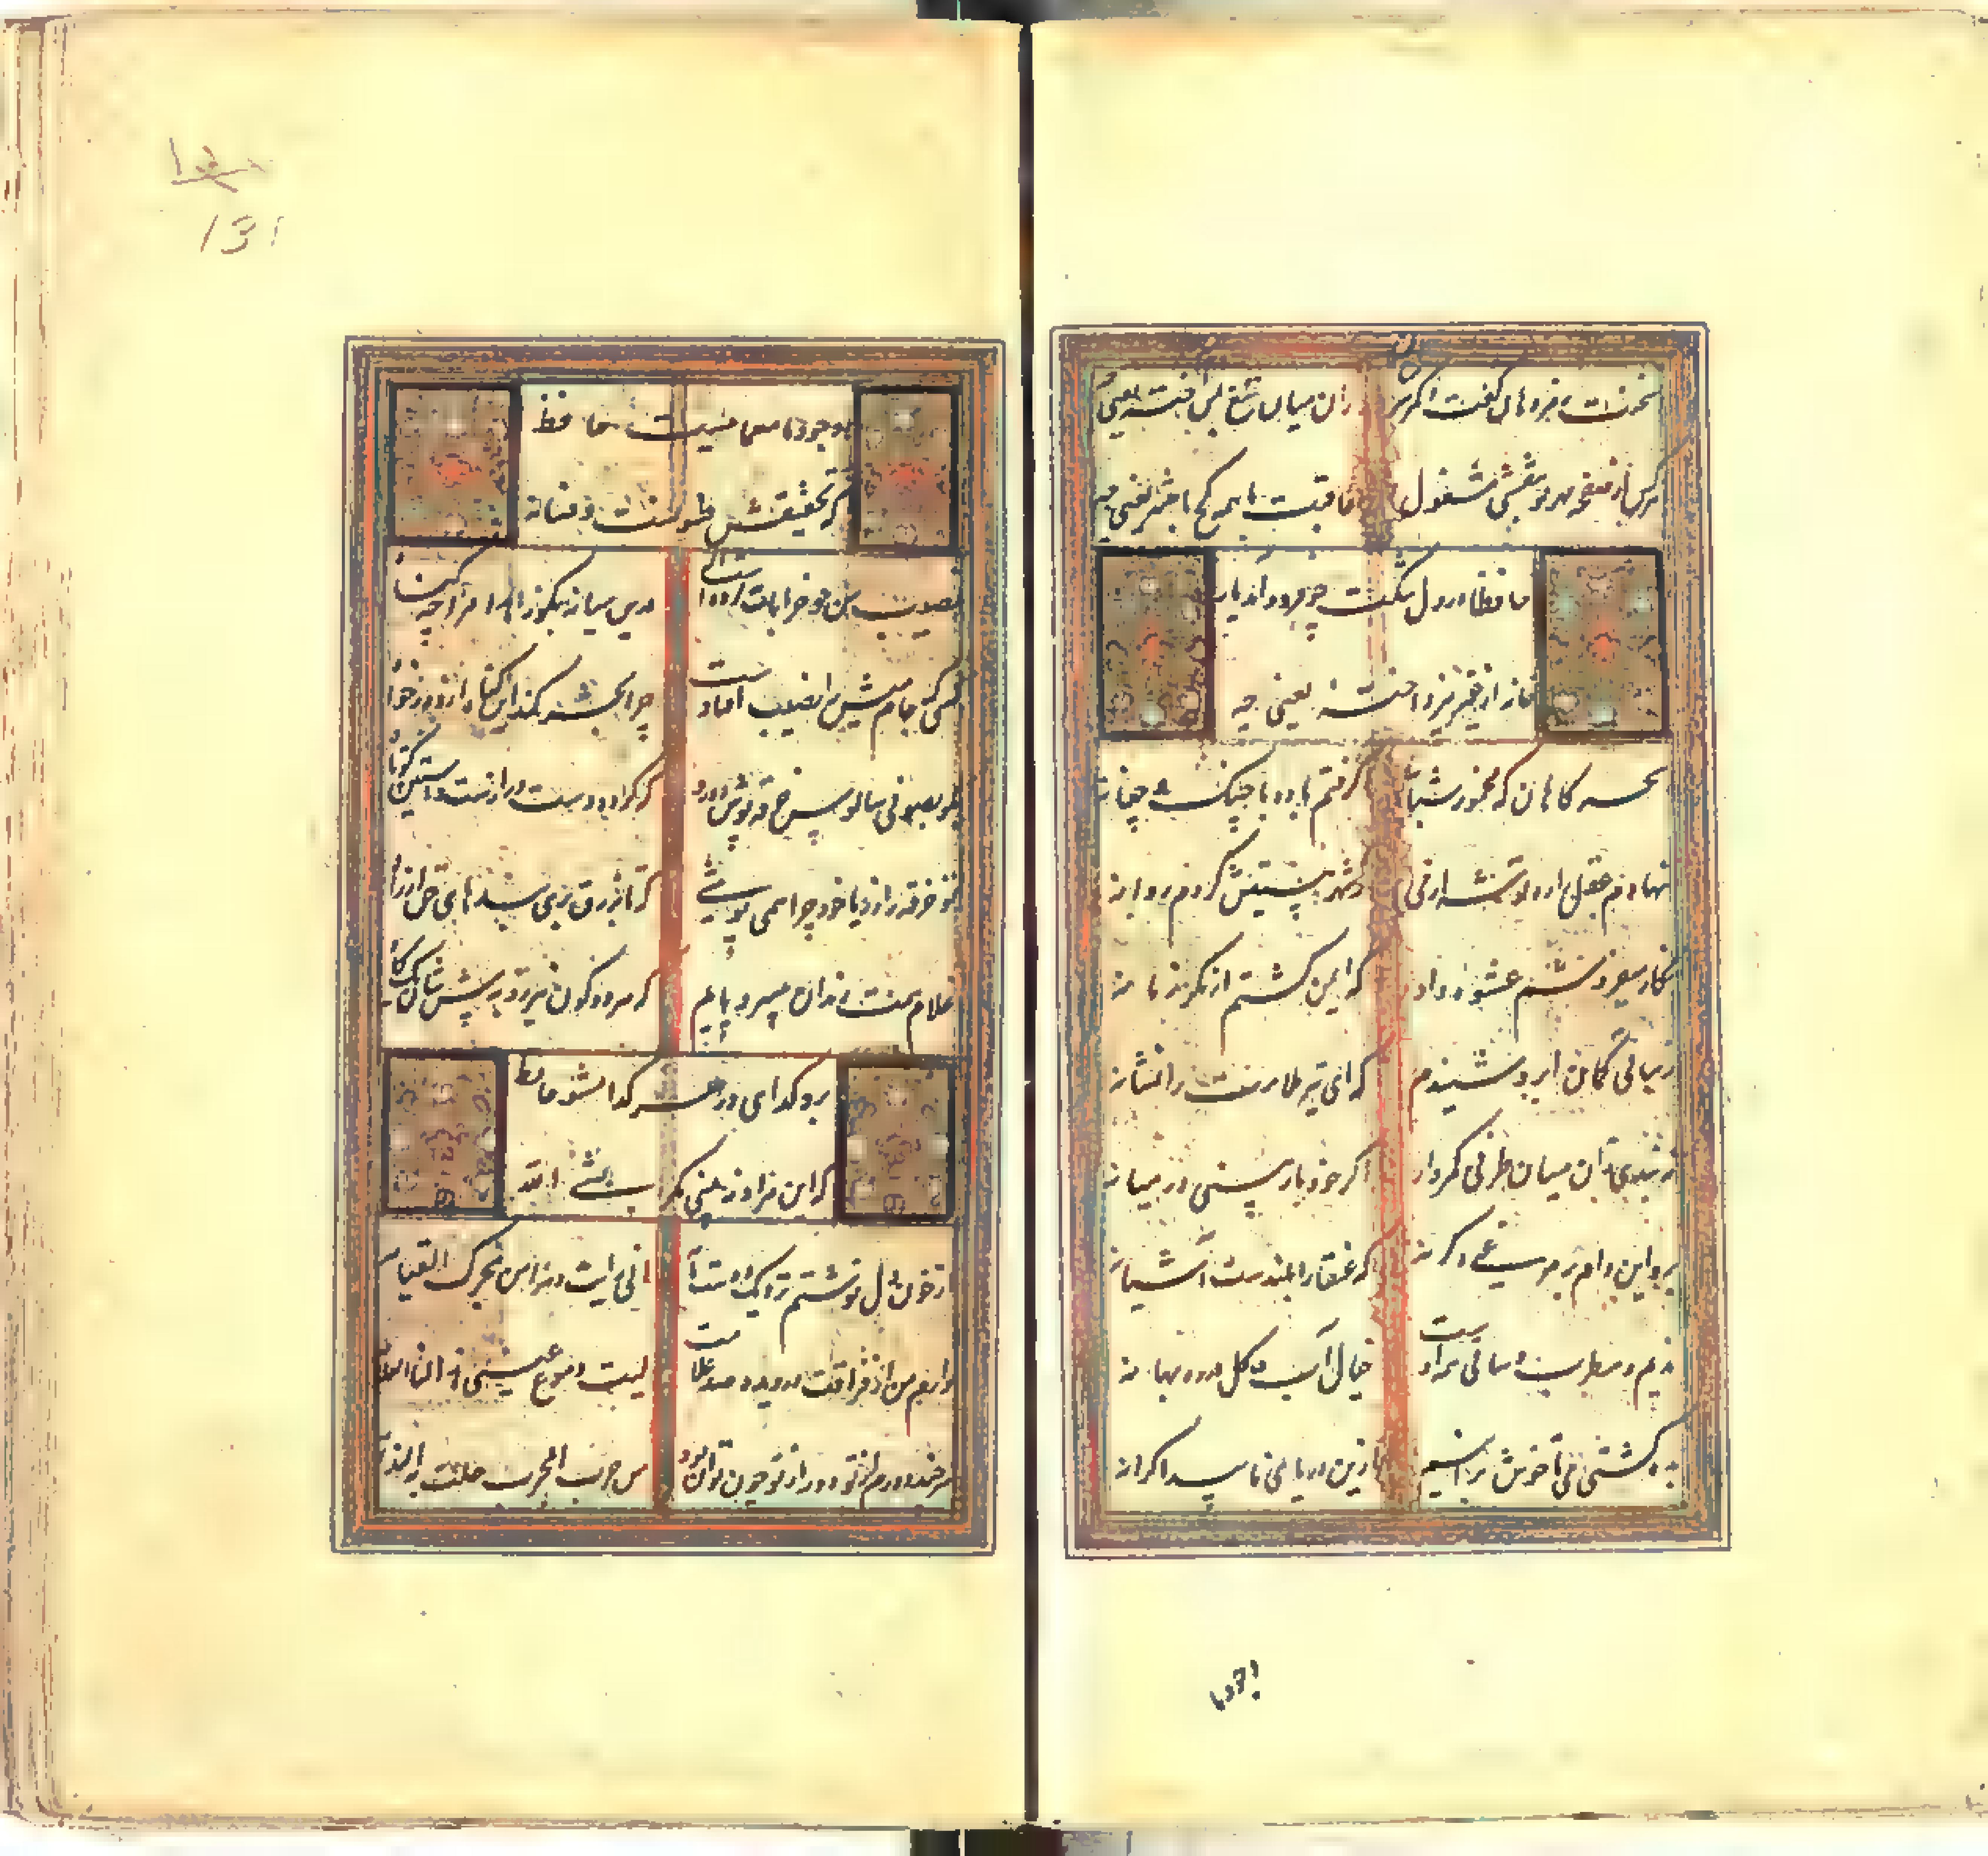 سخنت رمز دهان گفت اکر سر دران میان تیغ بمن آخته یعنی چه
هر کس از مهره مهر تو بنقشی مشغول عاقبت با همه کج باخته یعنی چه
حافظا در دل تنگت چو فرود آمد یار
خانه از غیر نپرداخته یعنی چه
سحرگاهان که مخمور شبانه گرفتم باده با چنگ و چغانه
نهادم عقل را ره توشه از می ز شهر هستیش کردم روانه
نگار میفروشم عشوه داد که ایمن گشتم از مکر زمانه
ز ساقی کمان ابرو شنیدم که ای تیر ملامت را نشانه
نبندی زان میان طرفی کمروار اگر خود را ببینی در میانه
برو این دام بر مرغی دگر نه که عنقا را بلندست آشیانه
ندیم و مطرب و ساقی همه اوست خیال آب و گل در ره بهانه
بده کشتی می تا خوش برانیم ازین دریای ناپیدا کرانه
وجود ما
131
وجود ما معماییست حافظ
که تحقیقش فسونست و فسانه
نصیب من چو خرابات کرده است درین میانه بگو زاهدا مرا چه گناه
کسی که جام میش نصیب افتادست چرا بحشر کنند این گناه ازو درخواه
بگو بصوفی سالوس خرقه پوش دورو که کرده دست درازست و آستین کوتاه
تو خرقه را ز ریا خود چرا همی پوشی که تا بزرق بری بندهای حق از راه
غلام همت رندان بی سر و پایم که هر دو کون نیرزد به پیش شان یک کاه
برو گدای در هر گدا مشو حافظ
که این مراد نیابی مگر بشیء الله
از خون دل نوشتم نزدیک دوست نامه انی رایت دهرا من هجرک القیامه
دارم من از فراقت در دیده صد علامت لیست دموع عینی هذا لنا العلامه
هرچند دورم از تو دور از تو چون توان بود من جرب المجرب حلت به الندامه